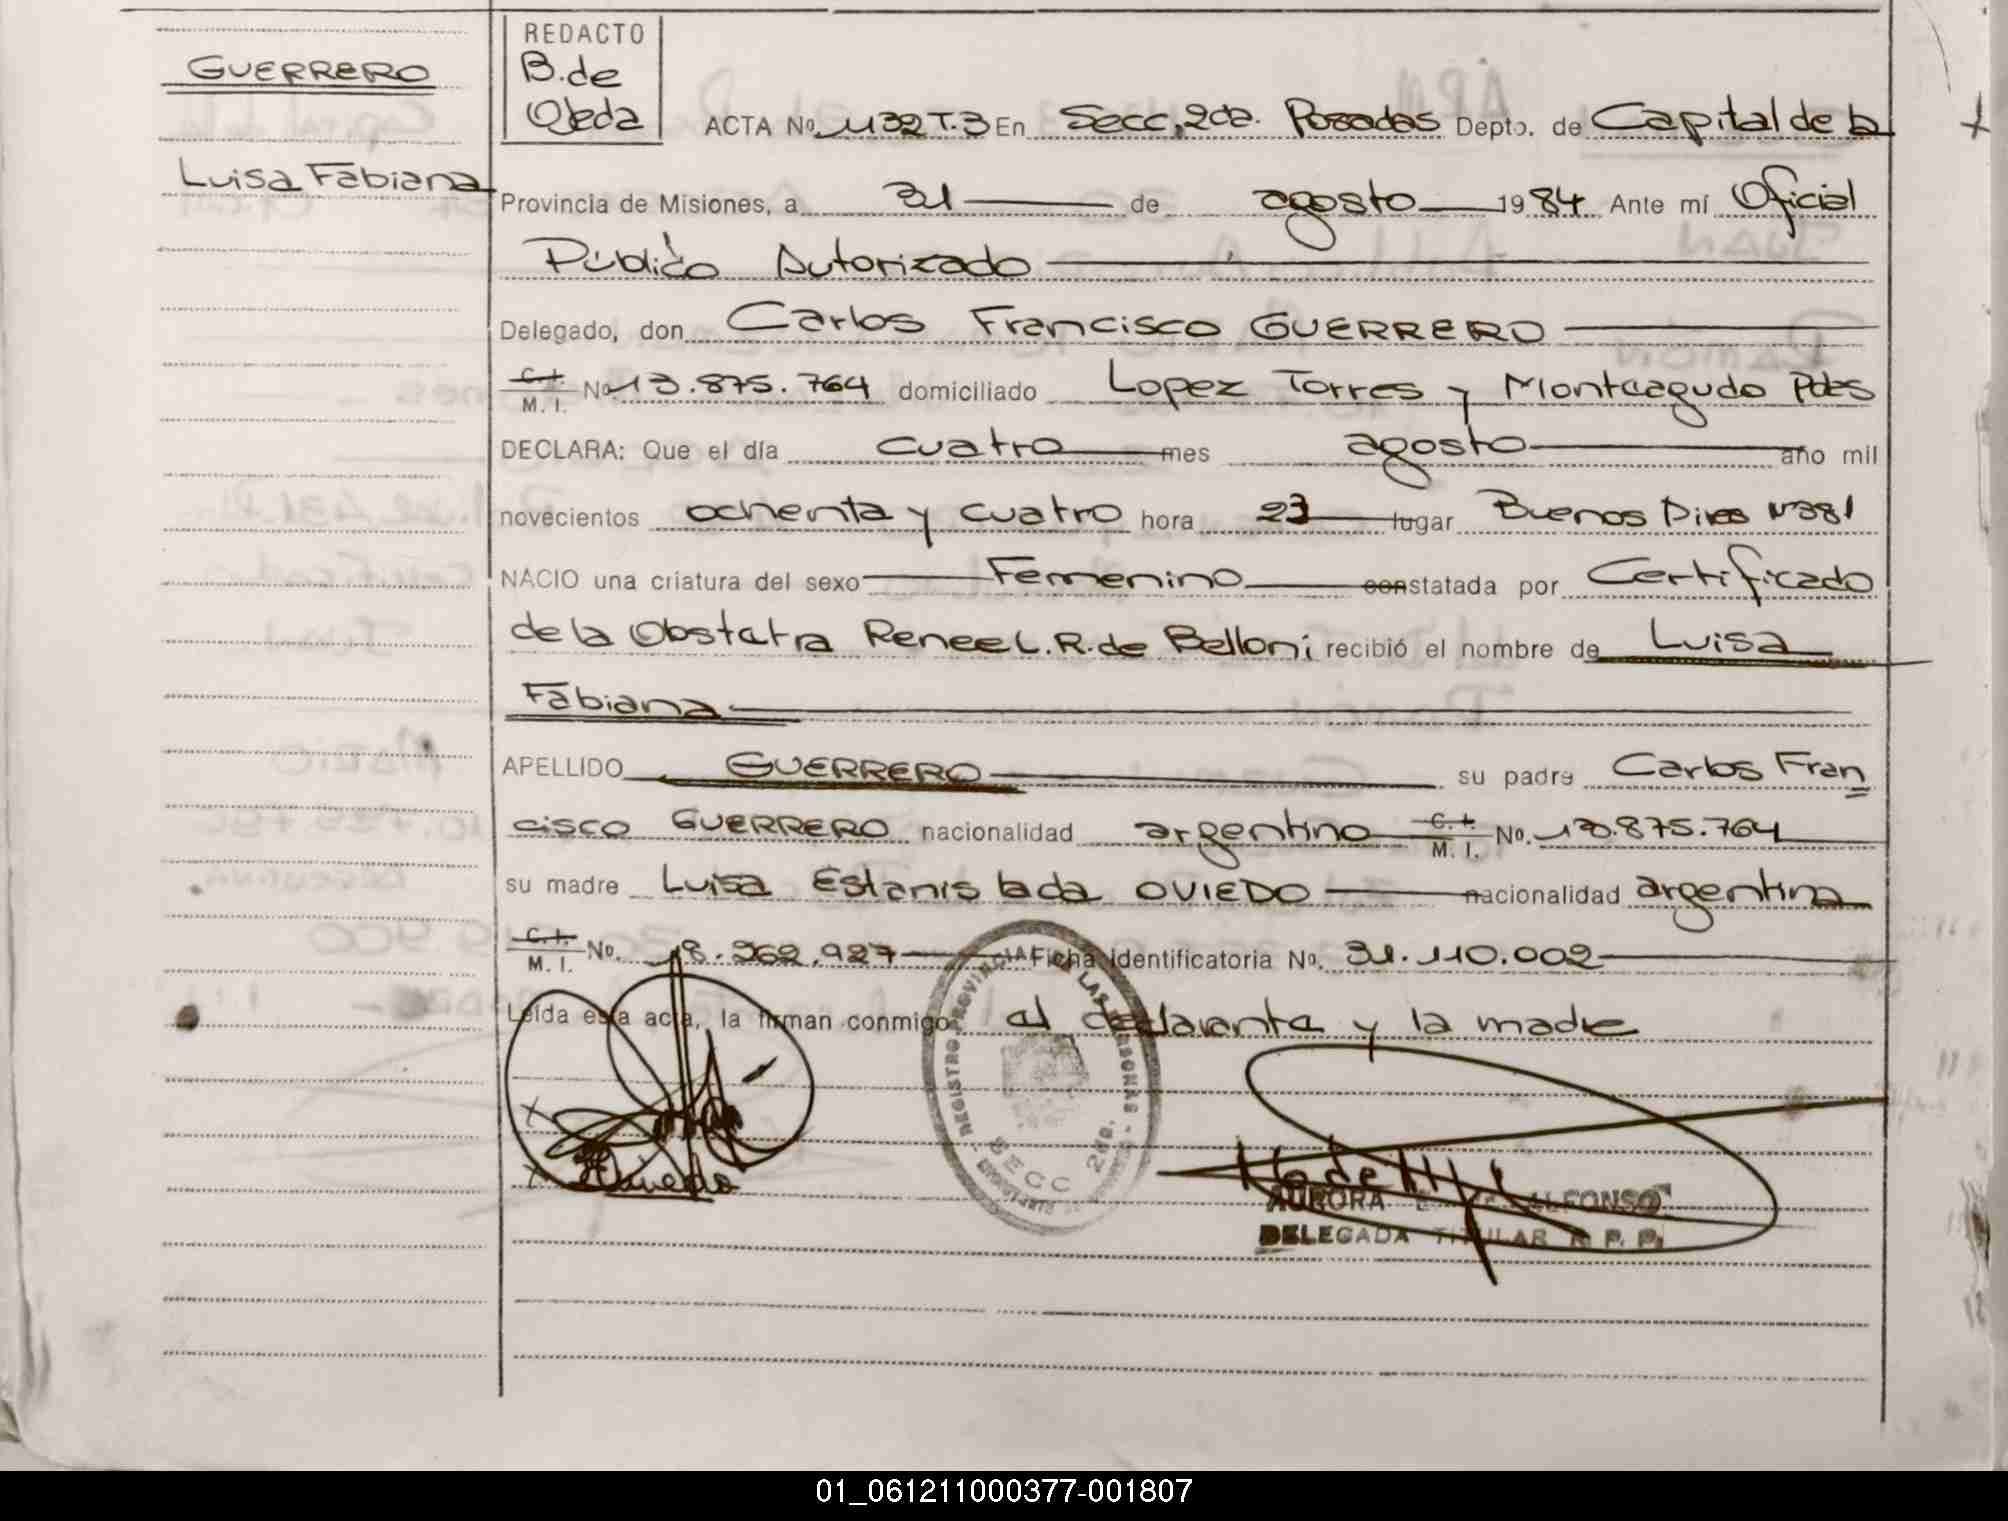 GUERRERO
Luisa Fabiana
REDACTO
B. de
Ojeda
ACTA Nº 1132 T. 3 En Secc. 2da. Posadas Depto. de Capital de la
Provincia de Misiones, a 31 de agosto 1984 Ante mí Oficial
Público Autorizado
Delegado, don Carlos Francisco GUERRERO
C. I. M. I. Nº 13.875.764 domiciliado Lopez Torres y Monteagudo Pdas
DECLARA: Que el día cuatro mes agosto año mil
novecientos ochenta y cuatro hora 23 lugar Buenos Aires
NACIO una criatura del sexo Femenino constatada por Certificado
de la Obstetra Renee L. R. de Belloni recibió el nombre de Luisa
Fabiana
APELLIDO GUERRERO su padre Carlos Fran
cisco GUERRERO nacionalidad argentino C. I. M. I. No. 13.875.764
su madre Luisa Estanislada OVIEDO nacionalidad argentina
C. I. M. I. No. 18.262.927 Ficha identificatoria No. 31.110.002
Leída esta acta, la firman conmigo el declarante y la madre
REGISTRO PROVINCIAL DE LAS PERSONAS
SECC 2da.
Oviedo
AURORA E. ALFONSO
DELEGADA TITULAR R. P. P.
01_061211000377-001807